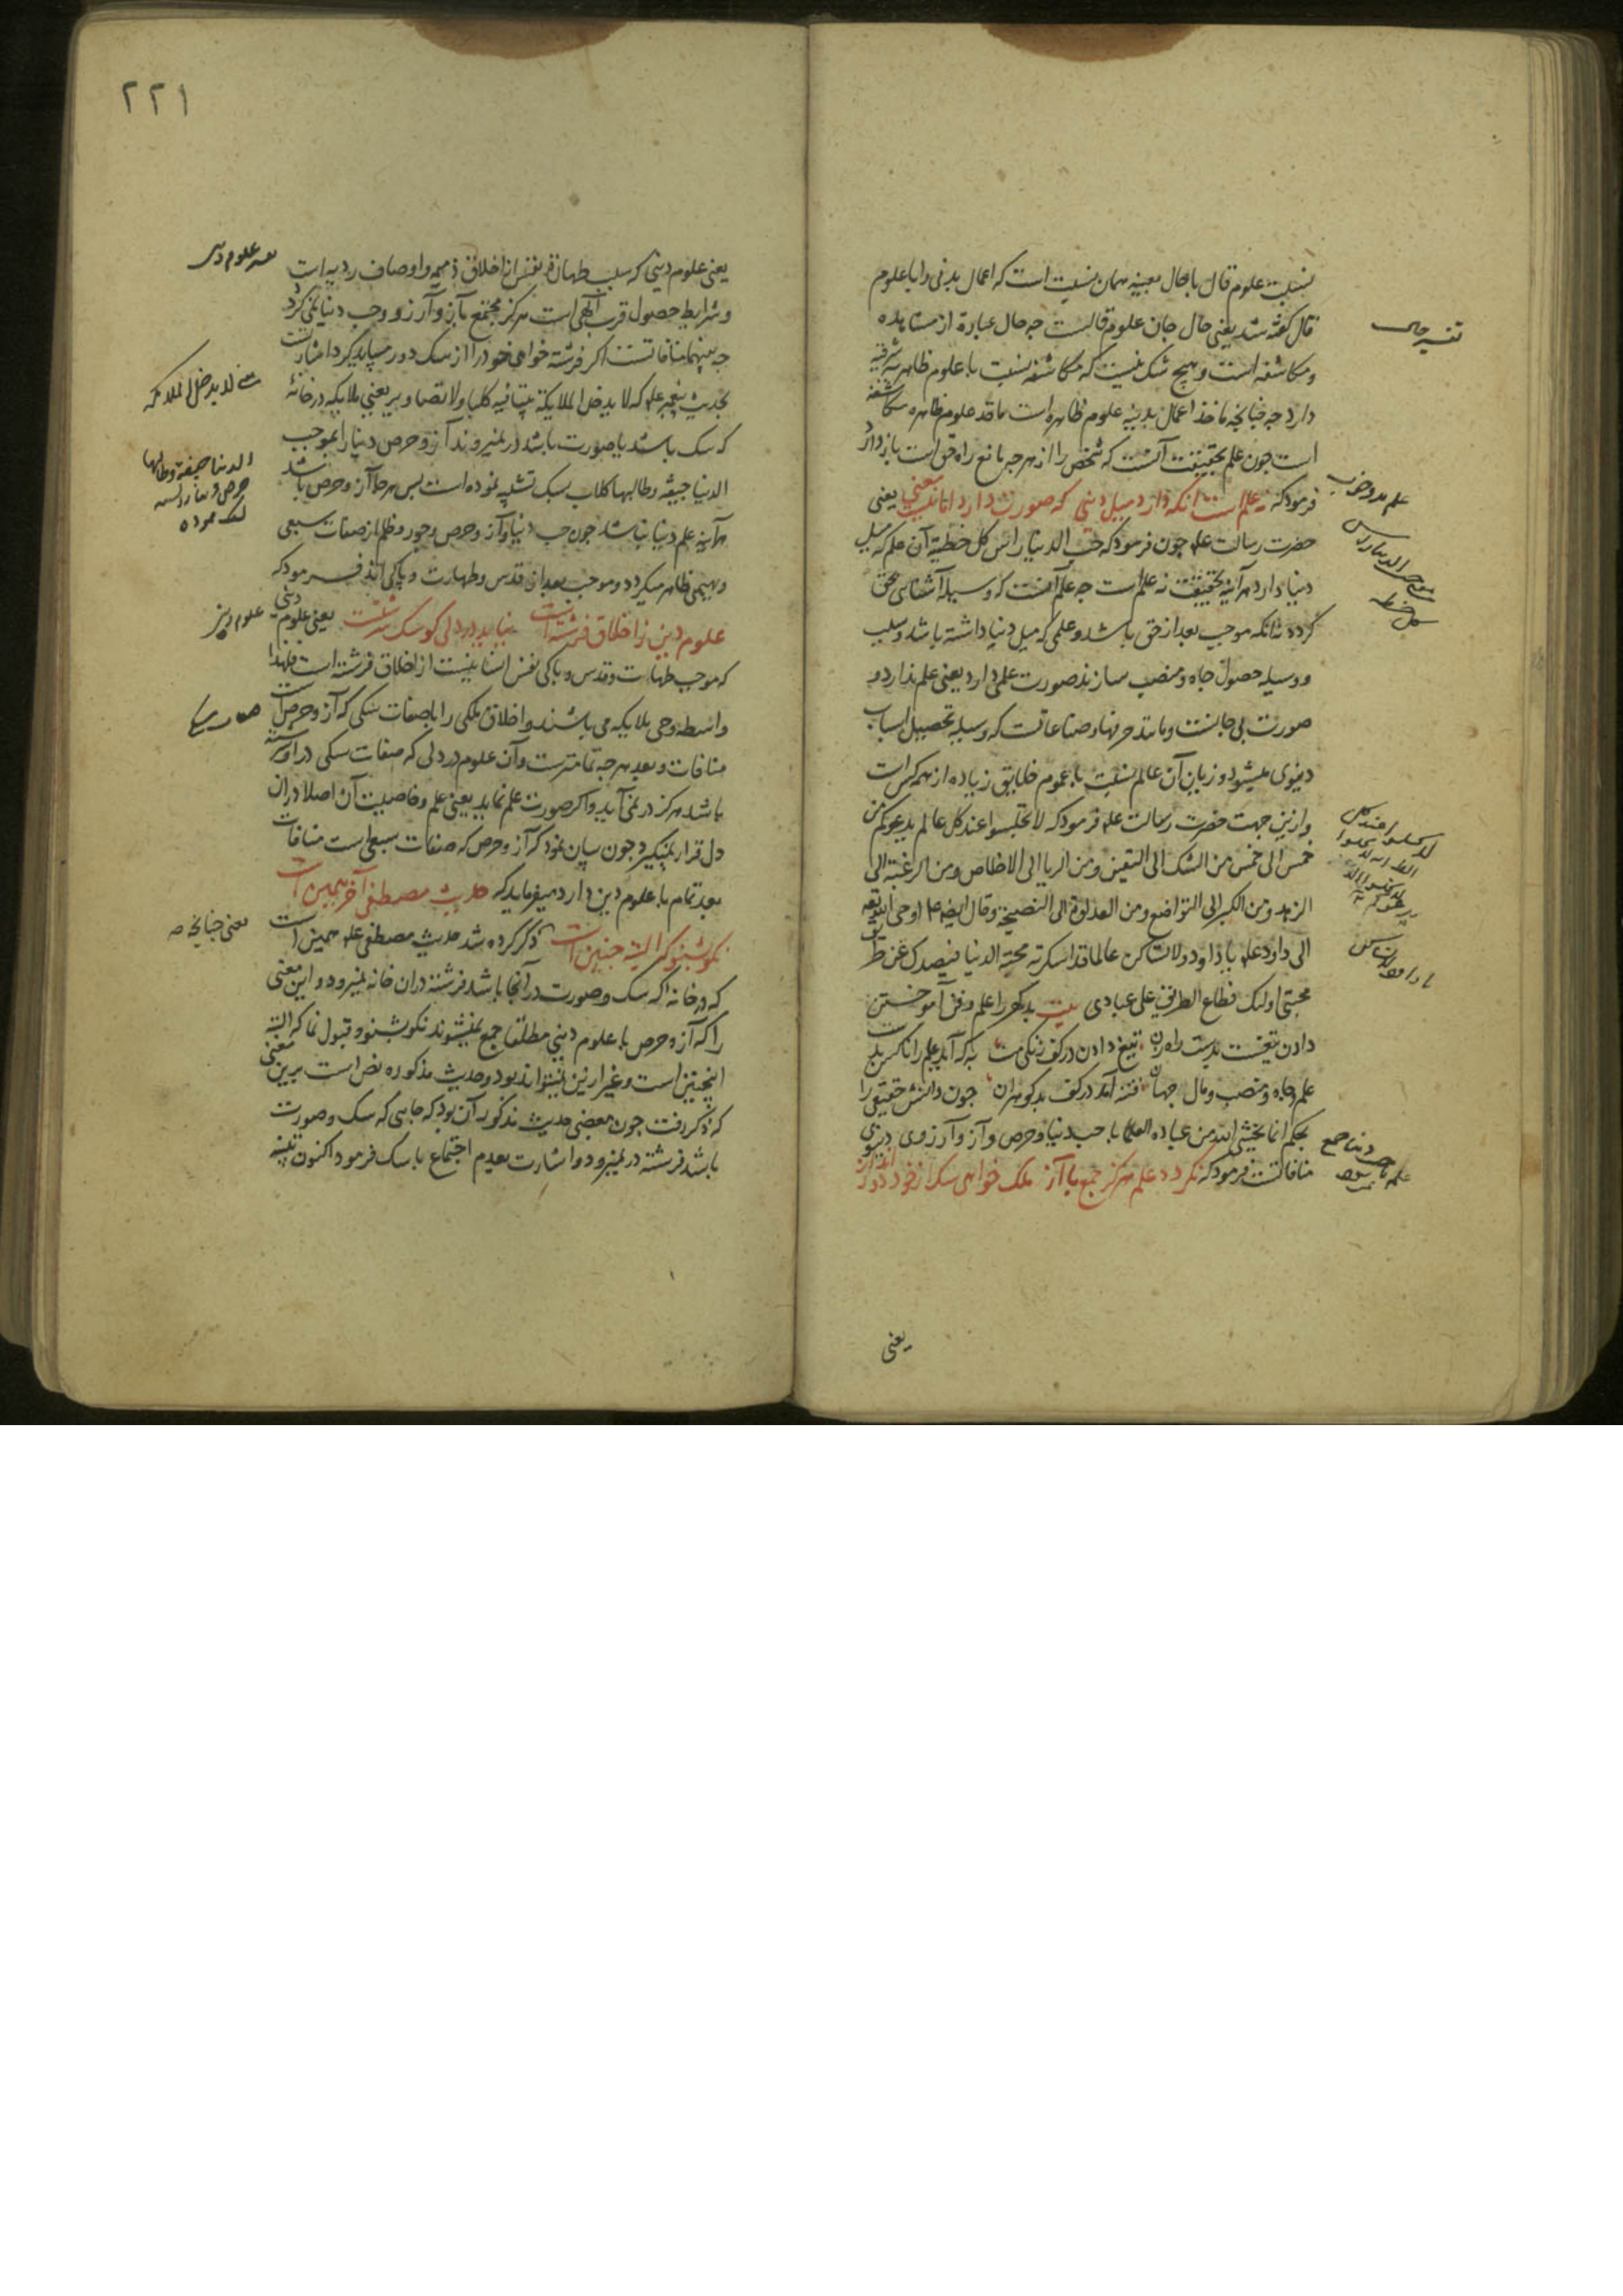 نسبت علوم قال با حال بعینه همان نسبت است که اعمال بدنی را با علوم
قال گفته شد یعنی حال جان علوم قالست جه حال عبارة از مشاهده
و مکاشفه است و هیچ شک نیست که مکاشفه نسبت با علوم ظاهر شرفیة
دارد جه جنانجه ماخذ اعمال بدنیه علوم ظاهره است ماخذ علوم ظاهره مکاشفه
است جون علم بحقیقت آنست که شخص را از هر جه مانع راه حق است باز دارد
فرمود که نه علمست انکه دارد میل دنیی که صورت دارد اما نیست معنی یعنی
حضرت رسالت علیه جون فرمود که حب الدنیا راس کل خطیئة آن علم که میل
دنیا دارد هر آینه بحقیقت نه علم است جه علم آنست که وسیلهٔ آشنائی حق
کردد نه انکه موجب بعد از حق باشد و علمی که میل دنیا داشته باشد و سبب
و وسیله حصول جاه و منصب سازند صورت علمی دارد یعنی علم ندارد و
صورت بی جانست و مانند حرفها و صناعاتست که وسیله تحصیل اسباب
دنیوی میشود و زیان آن عالم نسبت با عموم خلایق زیاده از همه کس است
و ازین جهت حضرت رسالت علیه فرمود که لا تجلسوا عند کل عالم یدعوکم من
خمس الی خمس من الشک الی الیقین و من الریا الی الاخلاص و من الرغبة الی
الزهد و من الکبر الی التواضع و من العداوة الی النصیحة و قال ایضا علیه اوحی الله تعالی
الی داود علیه یا داود لا تسالن عالما قد اسکرته محبة الدنیا فیصدک عن طریق
محبتی اولئک قطاع الطریق علی عبادی بیت بدکهر را علم و فن آموختن
دادن تیغست بدست راه زن تیغ دادن در کف زنکی مست به که آید علم را ناکس بدست
علم و جاه و منصب و مال جهان فتنه آمد در کف بدکوهران جون دانش حقیقی را
بحکم انما یخشی الله من عباده العلما با حب دنیا و حرص و آز و آرزوی دنیوی
منافاتست فرمود که نکردد علم هرکز جمع با آز ملک خواهی سک از خود دور انداز
یعنی
تفسیر حال
۲۲۱
یعنی علوم دینی که سبب طهارة نفس از اخلاق ذمیمه و اوصاف ردیه است
و شرایط حصول قرب الهی است هرکز مجتمع با آز و آرزو و حب دنیا نمی کردد
جه بینهما منافاتست اکر فرشته خواهی خود را از سک دور میباید کرد اشارتست
بحدیث پیغمبر علیه که لا یدخل الملایکة بیتا فیه کلب او لا تصاویر یعنی ملایکه در خانهٔ
که سک باشد یا صورت باشد در نمیروند آز و حرص دنیا را بموجب
الدنیا جیفة و طالبها کلاب بسک تشبیه نموده است پس هر جا آز و حرص باشد
هر آینه علم دینی نباشد جون حب دنیا و آز و حرص و جور و ظلم از صفات سبعی
و بهیمی ظاهر میکردد و موجب بعد از قدس و طهارت و پاکی اند فرمود که
علوم دین ز اخلاق فرشته است نیاید در دلی کو سک سرشت است یعنی علوم دینی
که موجب طهارت و قدس و پاکی نفس انسانیست از اخلاق فرشته است فلهذا
واسطه وحی ملایکه می باشند و اخلاق ملکی را با صفات سکی که آز و حرص است
منافات و بعد هر جه تمامترست و آن علوم در دلی که صفات سکی در او سرشته
باشد هرکز در نمی آید و اکر صورت علم نماید یعنی علم و خاصیت آن اصلا در ان
دل قرار نمیکیرد جون بیان نمود که آز و حرص که صفات سبعی است منافات
بعد تمام با علوم دین دارد میفرماید که حدیث مصطفی آخر همین است
نکو بشنو که البته جنین است ذکر کرده شد حدیث مصطفی علیه همین است
که در خانه که سک و صورت در آنجا باشد فرشته در ان خانه نمیرود و این معنی
را که آز و حرص با علوم دینی مطلقا جمع نمیشوند نکو بشنو و قبول نما که البته
اینجنین است و غیر ازین نمیتواند بود و حدیث مذکوره نص است برین معنی
که ذکر رفت جون بعضی حدیث مذکور آن بود که جایی که سک و صورت
باشد فرشته در نمیرود و اشارت بعدم اجتماع با سک فرمود اکنون تنبیه
لا یدخل الملائکه
الدنیا جیفة و طالبها